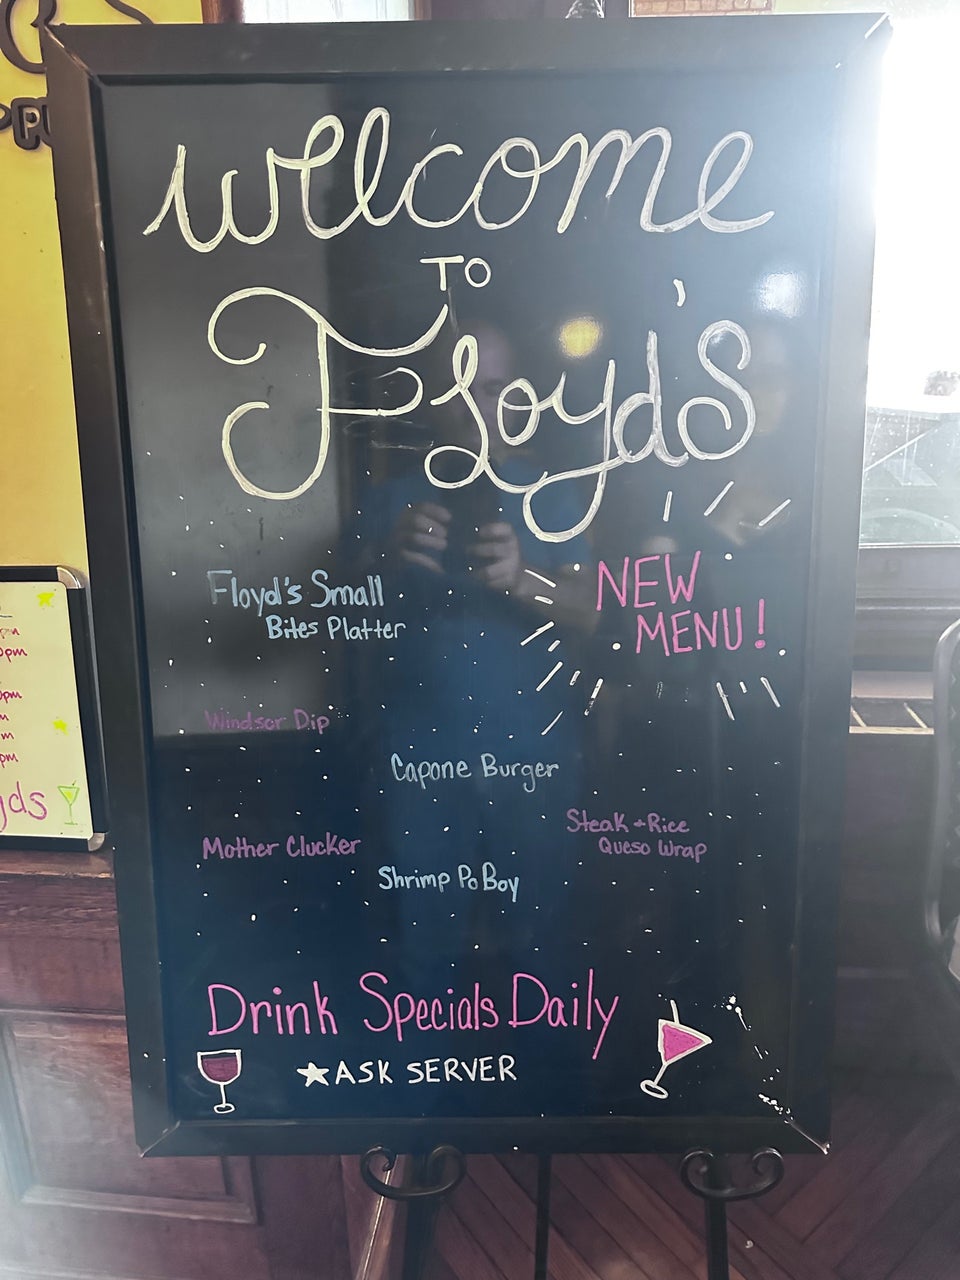 Welcome
TO
Floyd's
Floyd's Small
Bites Platter
NEW
MENU!
Windsor Dip
Capone Burger
Steak + Rice
Queso Wrap
Mother Clucker
Shrimp Po Boy
Drink Specials Daily
★ASK SERVER